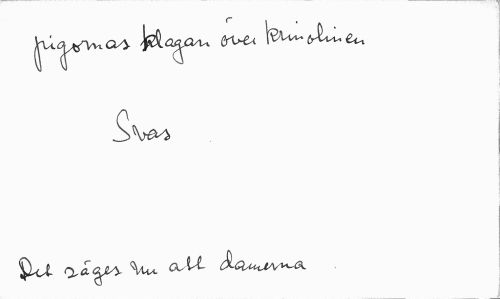 pigornas klagan över krinolinen
Svas
Det säges nu att damerna